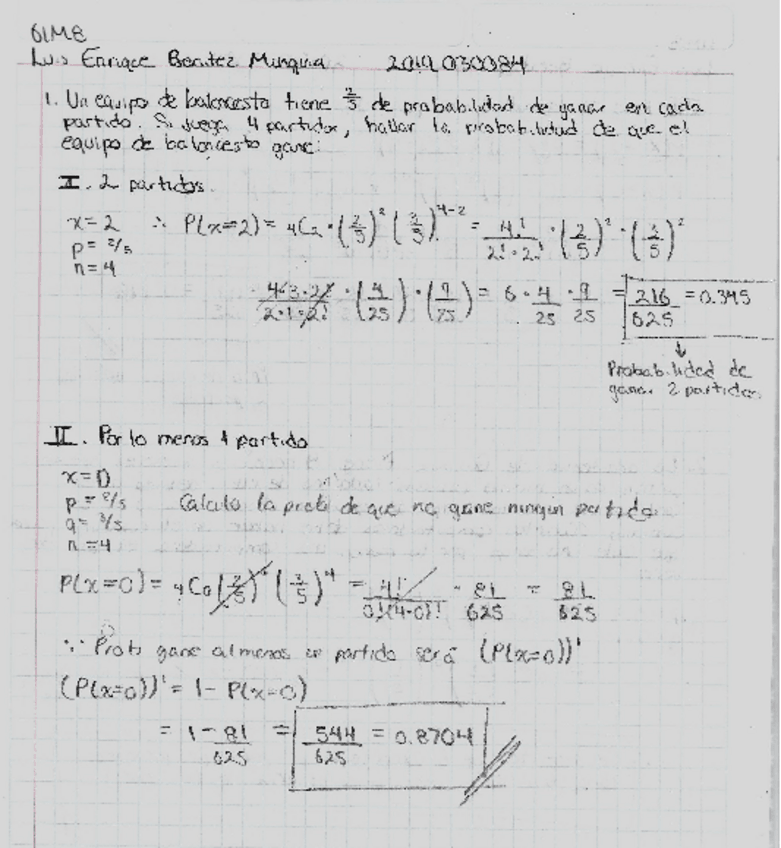 6IM8
Luis Enrique Benitez Munguia 2019030084
1. Un equipo de baloncesto tiene 2/5 de probabilidad de ganar en cada
partido. Si juega 4 partidos, hallar la probabilidad de que el
equipo de baloncesto gane:
I. 2 partidos.
x=2 ∴ P(x=2) = 4C2 · (2/5)² (3/5)⁴⁻² = 4!/(2!·2!) · (2/5)² · (3/5)²
p=2/5
n=4
4·3·2!/(2·1·2!) · (4/25) · (9/25) = 6 · 4/25 · 9/25 = 216/625 = 0.345
↓
Probabilidad de
ganar 2 partidos
II. Por lo menos 1 partido
x=0
p=2/5 Calculo la prob de que no gane ningún partido
q=3/5
n=4
P(x=0) = 4C0 (2/5)⁰ (3/5)⁴ = 4!/(0!(4-0)!) · 81/625 = 81/625
∵ Prob gane al menos un partido será (P(x=0))'
(P(x=0))' = 1 - P(x=0)
= 1 - 81/625 = 544/625 = 0.8704